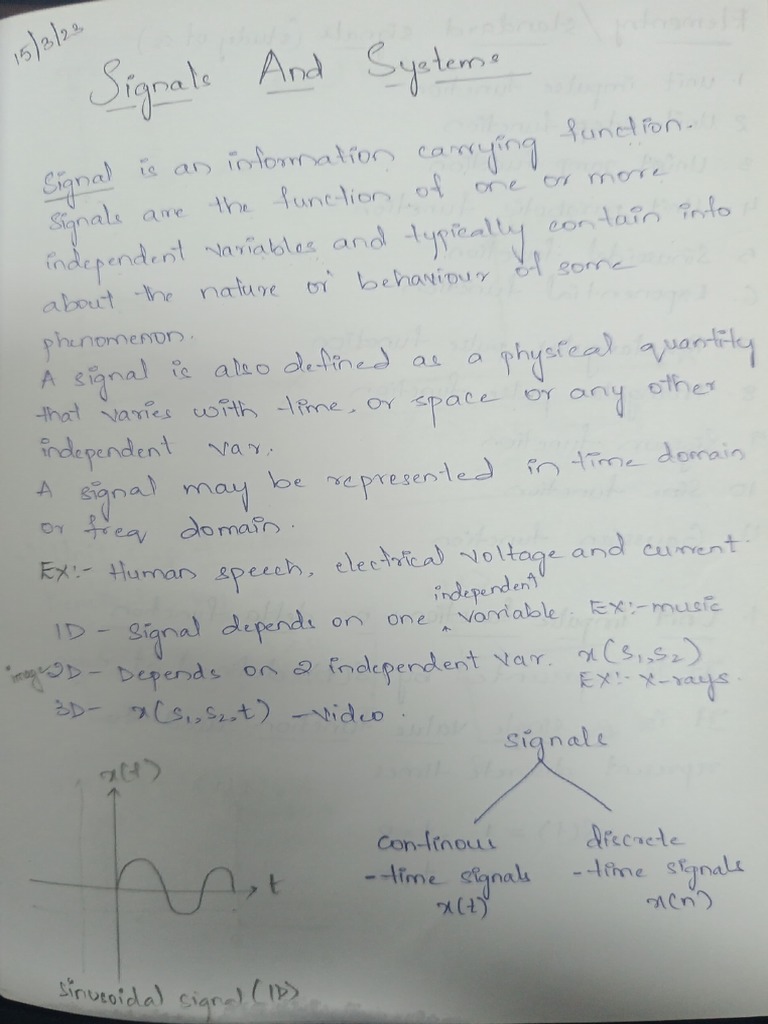 15/3/23
Signals And Systems
Signal is an information carrying function.
Signals are the function of one or more
independent variables and typically contain info
about the nature or behaviour of some
phenomenon.
A signal is also defined as a physical quantity
that varies with time, or space or any other
independent var.
A signal may be represented in time domain
or freq domain.
EX:- Human speech, electrical voltage and current.
independent
1D - Signal depends on one ^ variable EX:- music
image 2D - Depends on 2 independent var. x(s1, s2)
EX:- X-rays.
3D- x(s1, s2, t) - Video.
signals
continous
-time signals
x(t)
discrete
-time signals
x(n)
x(t)
t
sinusoidal signal (1D)